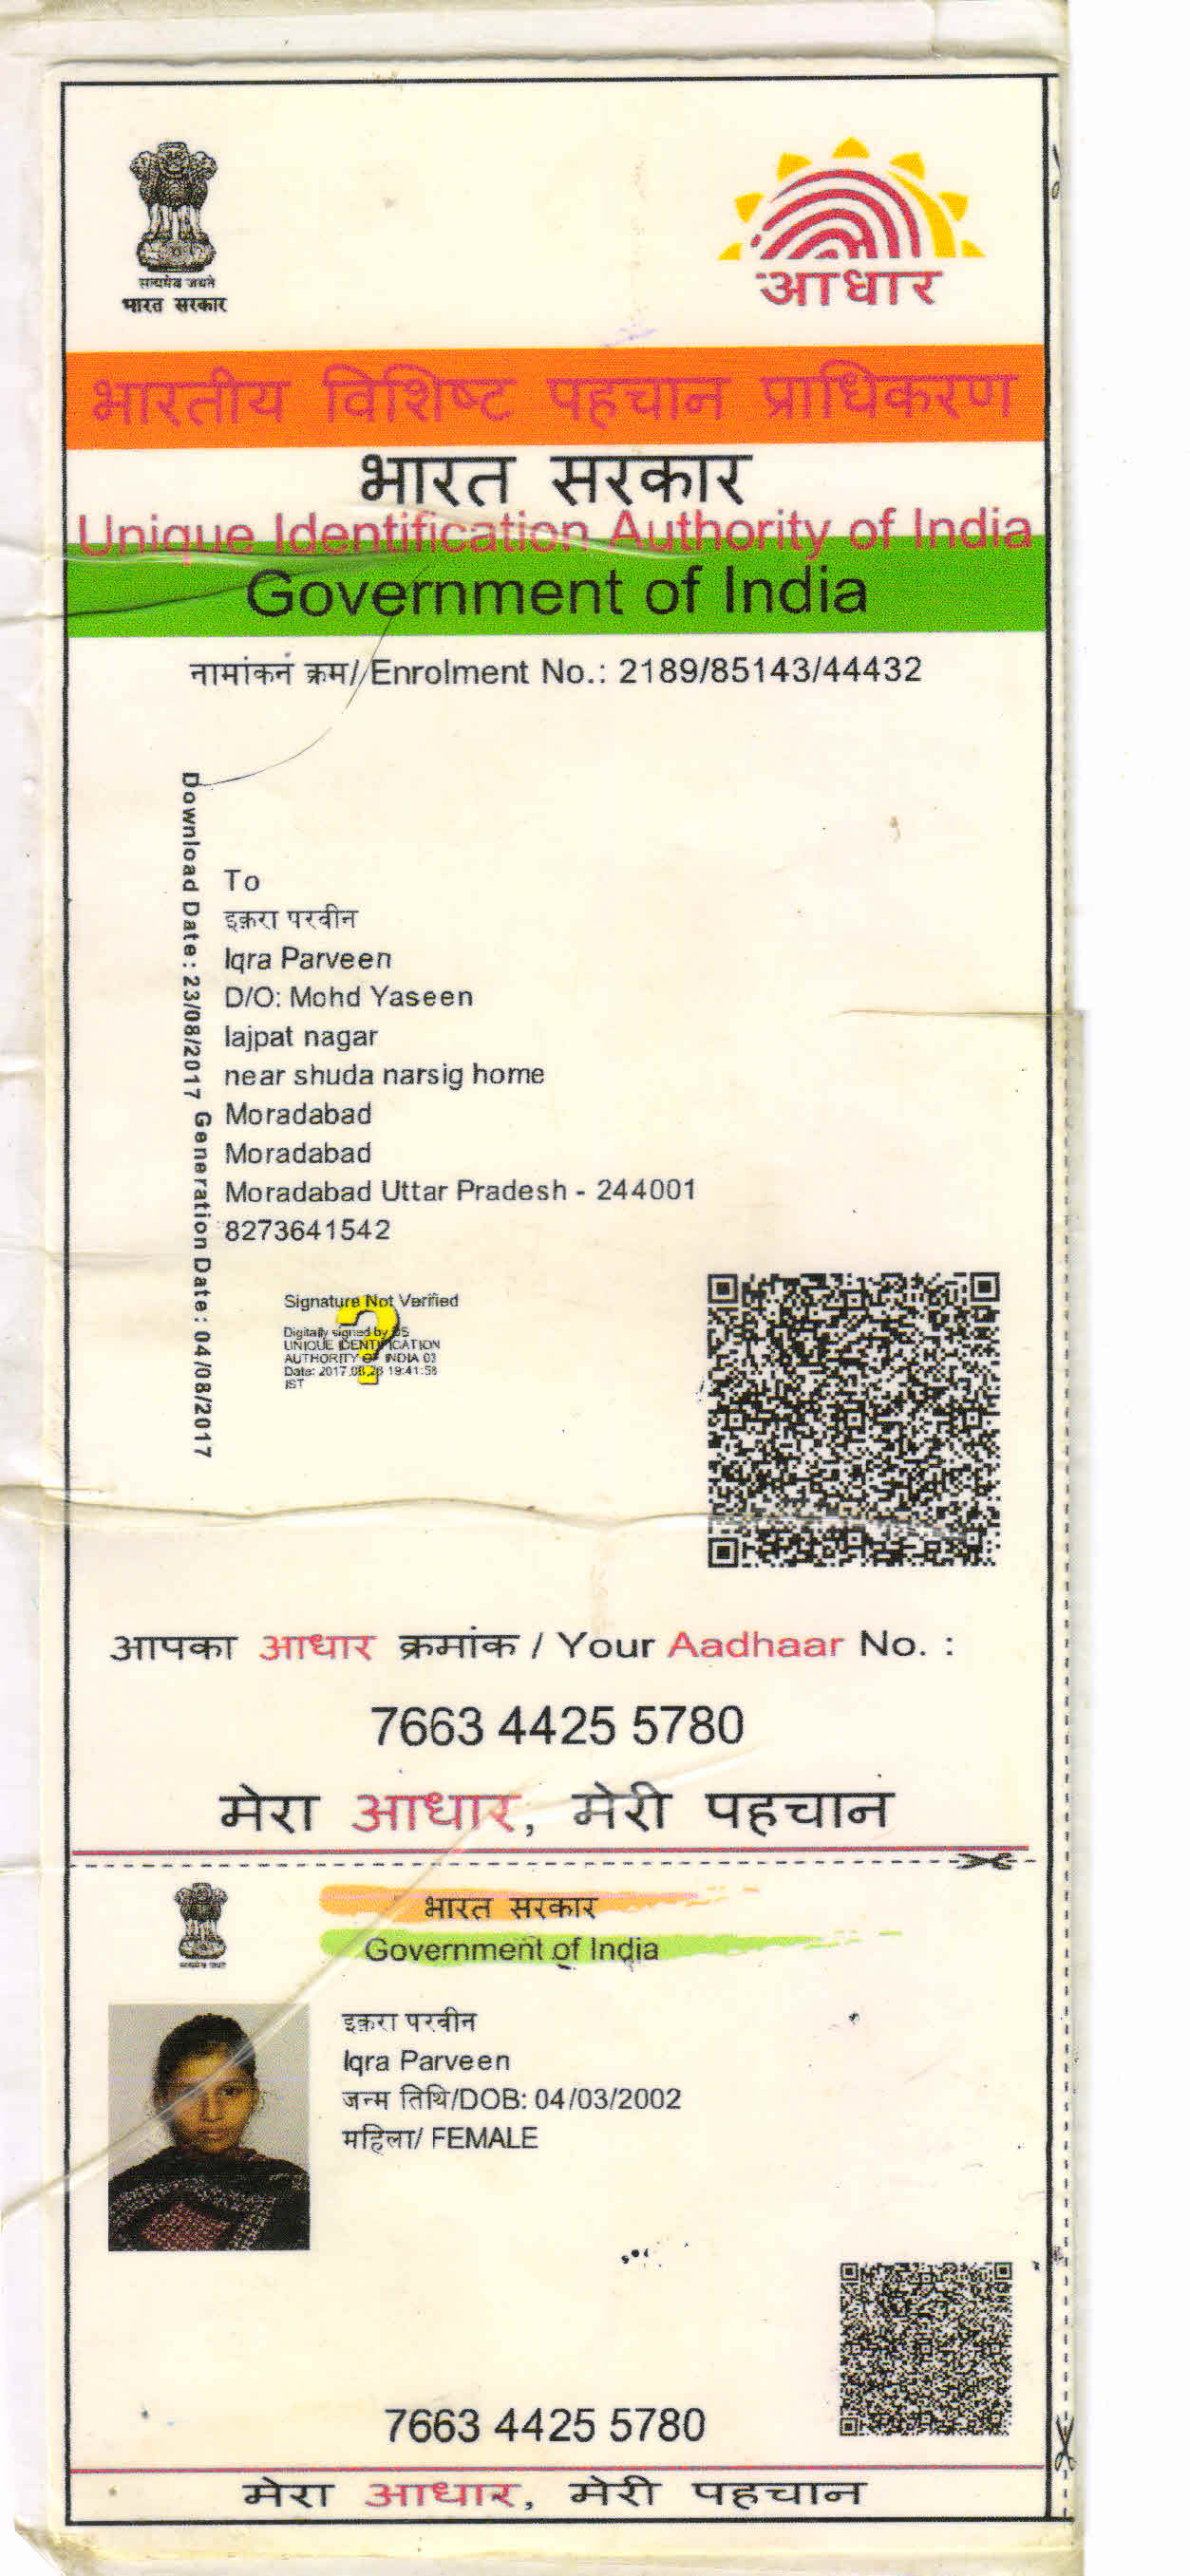 सत्यमेव जयते
भारत सरकार
आधार
भारतीय विशिष्ट पहचान प्राधिकरण
भारत सरकार
Unique Identification Authority of India
Government of India
नामांकन क्रम// Enrolment No.: 2189/85143/44432
Download Date: 23/08/2017 Generation Date: 04/08/2017
To
इक़रा परवीन
Iqra Parveen
D/O: Mohd Yaseen
lajpat nagar
near shuda narsig home
Moradabad
Moradabad
Moradabad Uttar Pradesh - 244001
8273641542
Signature Not Verified
Digitally signed by DS
UNIQUE IDENTIFICATION
AUTHORITY OF INDIA 03
Date: 2017.08.23 19:41:56
IST
आपका आधार क्रमांक / Your Aadhaar No. :
7663 4425 5780
मेरा आधार, मेरी पहचान
भारत सरकार
Government of India
इक़रा परवीन
Iqra Parveen
जन्म तिथि/DOB: 04/03/2002
महिला/ FEMALE
7663 4425 5780
मेरा आधार, मेरी पहचान